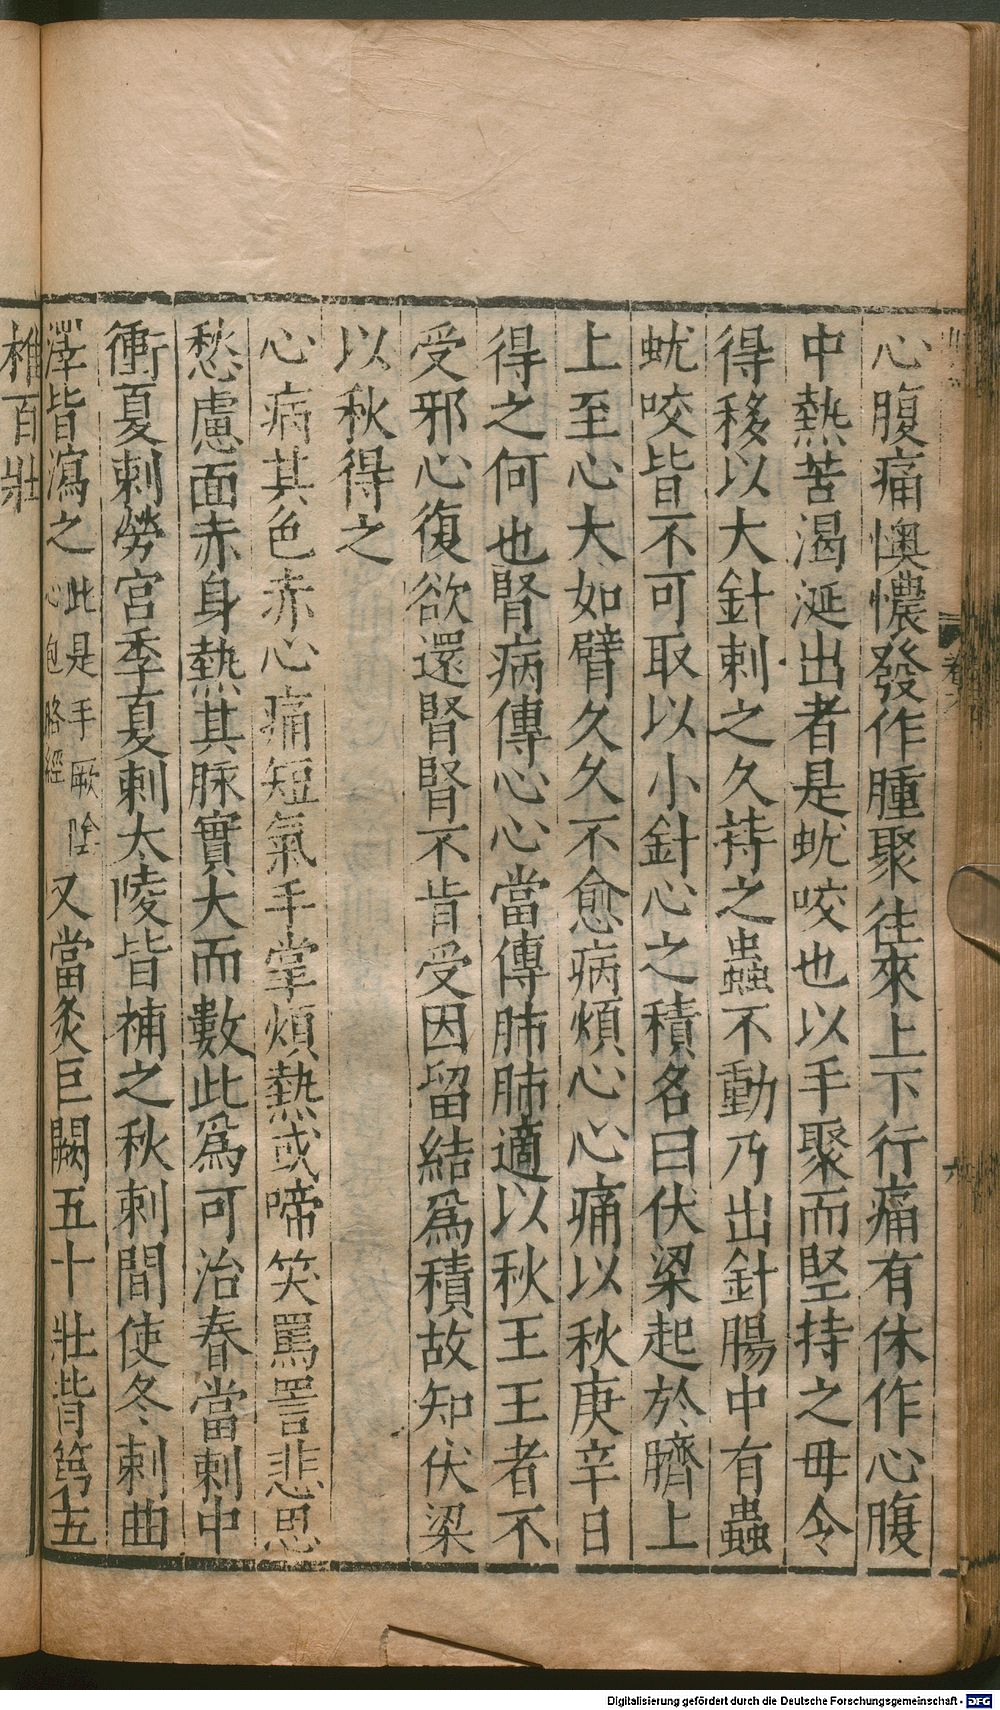 心腹痛懊憹發作腫聚往來上下行痛有休作心腹
中熱苦渴涎出者是蚘咬也以手聚而堅持之毋令
得移以大針刺之久持之蟲不動乃出針腸中有蟲
蚘咬皆不可取以小針心之積名曰伏梁起於臍上
上至心大如臂久久不愈病煩心心痛以秋庚辛日
得之何也腎病傳心心當傳肺肺適以秋王王者不
受邪心復欲還腎腎不肯受因留結爲積故知伏梁
以秋得之
心病其色赤心痛短氣手掌煩熱或啼笑罵詈悲思
愁慮面赤身熱其脉實大而數此爲可治春當刺中
衝夏刺勞宮季夏刺太陵皆補之秋刺間使冬刺曲
澤皆瀉之此是手厥陰心包絡經又當灸巨闕五十壯背第五
椎百壯
卷六
六
Digitalisierung gefördert durch die Deutsche Forschungsgemeinschaft - DFG